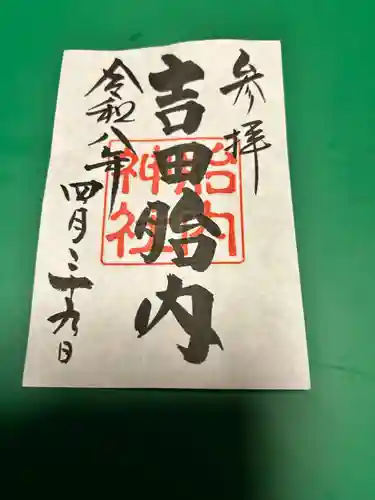 参拝
吉田胎内
胎内
神社
令和八年
四月二十九日